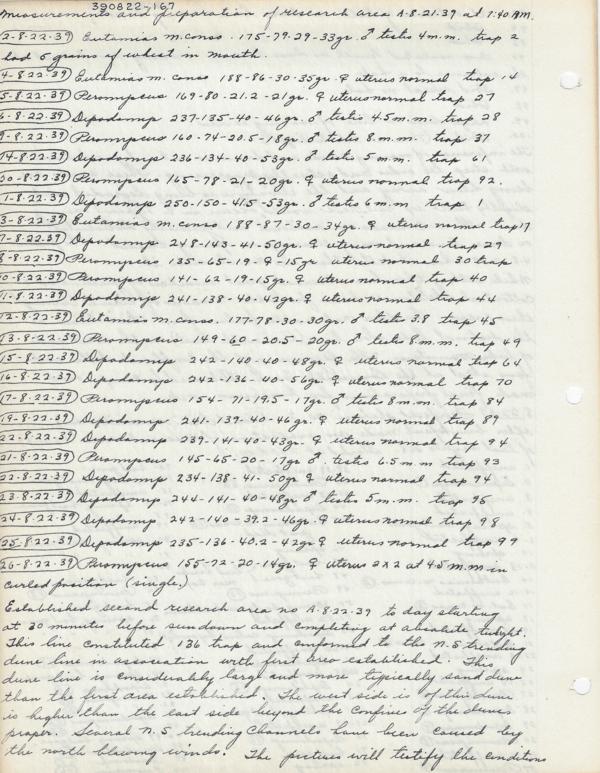 390822-167
Measurements and preparation of research area A-8-21-39 at 7:40 AM.
2-8-22-39 Eutamias m. conso. 175-79-29-33gr. ♂ testis 4m.m. trap 2
had 5 grains of wheat in mouth.
4-8-22-39 Eutamias m. conso 188-86-30-35gr. ♀ uterus normal trap 14
5-8-22-39 Peromyscus 169-80-21.2-21gr. ♀ uterus normal trap 27
6-8-22-39 Dipodomys 237-135-40-46gr. ♂ testis 4.5 m.m. trap 28
9-8-22-39 Peromyscus 160-74-20.5-18gr. ♂ testis 8 m.m. trap 37
14-8-22-39 Dipodomys 236-134-40-53gr. ♂ testis 5 m.m. trap 61
20-8-22-39 Peromyscus 165-78-21-20gr. ♀ uterus normal trap 92.
1-8-22-39 Dipodomys 250-150-41.5-53gr. ♂ testis 6 m.m. trap 1
3-8-22-39 Eutamias m. conso 188-87-30-34gr. ♀ uterus normal trap 17
7-8-22-39 Dipodomys 248-143-41-50gr. ♀ uterus normal trap 29
8-8-22-39 Peromyscus 135-65-19-♀-15gr uterus normal 30 trap
10-8-22-39 Peromyscus 141-62-19-15gr. ♀ uterus normal trap 40
11-8-22-39 Dipodomys 241-138-40-42gr. ♀ uterus normal trap 44
12-8-22-39 Eutamias m. conso. 177-78-30-30gr. ♂ testis 3.8 trap 45
13-8-22-39 Peromyscus 149-60-20.5-20gr. ♂ testis 8 m.m. trap 49
15-8-22-39 Dipodomys 242-140-40-48gr. ♀ uterus normal trap 64
16-8-22-39 Dipodomys 242-136-40-56gr. ♀ uterus normal trap 70
17-8-22-39 Peromyscus 154-71-19.5-17gr. ♂ testis 8 m.m. trap 84
19-8-22-39 Dipodomys 241-139-40-46gr. ♀ uterus normal trap 89
22-8-22-39 Dipodomys 239-141-40-43gr. ♀ uterus normal trap 94
21-8-22-39 Peromyscus 145-65-20-17gr ♂. testis 6.5 m.m trap 93
22-8-22-39 Dipodomys 234-138-41-50gr ♀ uterus normal trap 94
23-8-22-39 Dipodomys 244-141-40-48gr ♂ testis 5 m.m. trap 95
24-8-22-39 Dipodomys 242-140-39.2-46gr. ♀ uterus normal trap 98
25-8-22-39 Dipodomys 235-136-40.2-42gr ♀ uterus normal trap 99
26-8-22-39 Peromyscus 155-72-20-14gr. ♀ uterus 2x2 at 4.5 m.m-in
curled position (single.)
Established second research area no A-8-22-39 to day starting
at 30 minutes before sundown and completing at absolute twilight.
This line constituted 136 trap and conformed to the N.S trending
dune line in association with first area established. This
dune line is considerably large and more typically sand dune
than the first area established. The west side is of this dune
is higher than the east side beyond the confines of the dunes
proper. Several N.S. trending channels have been caused by
the north blowing winds. The pictures will testify the conditions